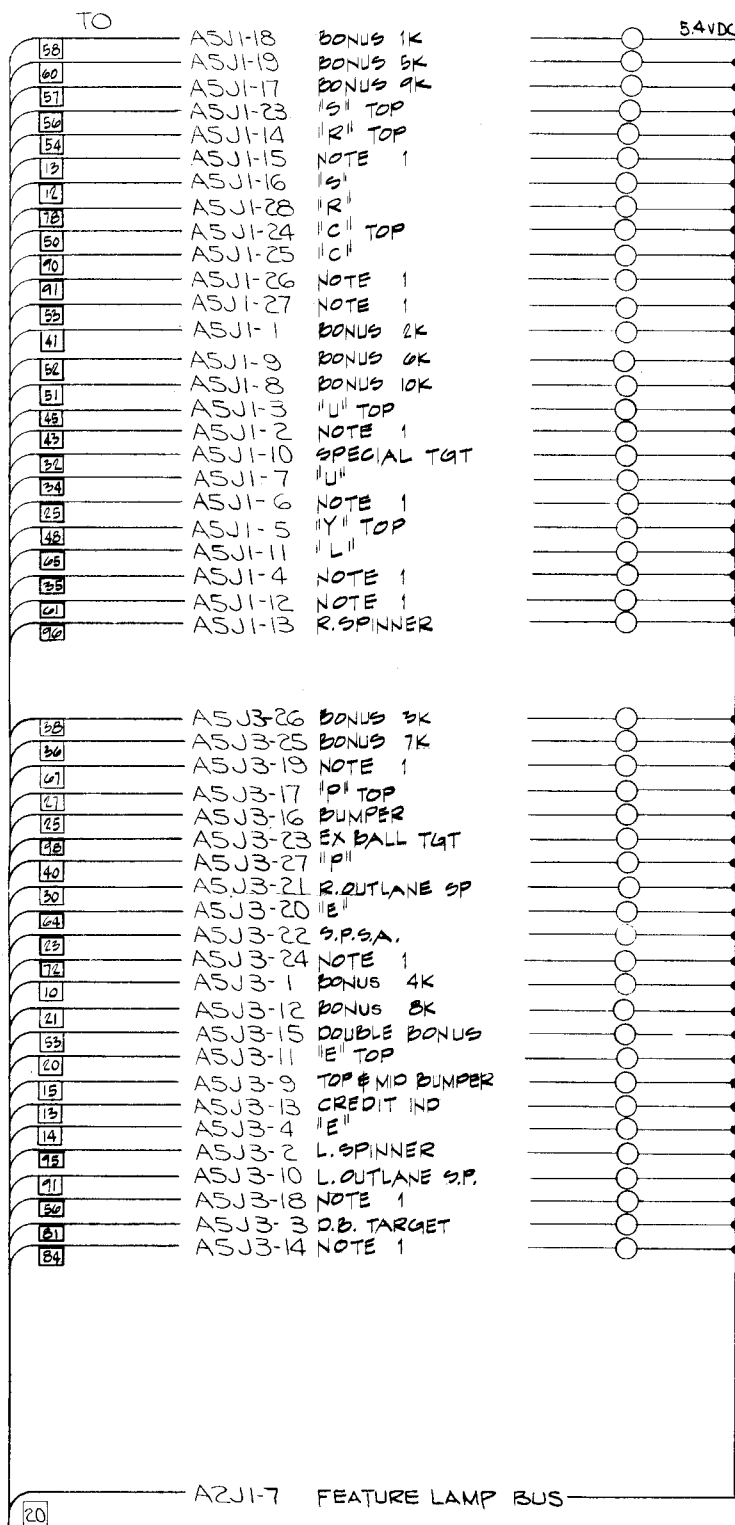 TO
5.4 VDC
58 A5J1-18 BONUS 1K
60 A5J1-19 BONUS 5K
57 A5J1-17 BONUS 9K
56 A5J1-23 "S" TOP
54 A5J1-14 "R" TOP
13 A5J1-15 NOTE 1
12 A5J1-16 "S"
78 A5J1-28 "R"
50 A5J1-24 "C" TOP
90 A5J1-25 "C"
91 A5J1-26 NOTE 1
53 A5J1-27 NOTE 1
41 A5J1-1 BONUS 2K
52 A5J1-9 BONUS 6K
51 A5J1-8 BONUS 10K
45 A5J1-3 "U" TOP
43 A5J1-2 NOTE 1
32 A5J1-10 SPECIAL TGT
34 A5J1-7 "U"
25 A5J1-6 NOTE 1
48 A5J1-5 "Y" TOP
65 A5J1-11 "L"
35 A5J1-4 NOTE 1
61 A5J1-12 NOTE 1
96 A5J1-13 R.SPINNER
38 A5J3-26 BONUS 3K
36 A5J3-25 BONUS 7K
67 A5J3-19 NOTE 1
27 A5J3-17 "P" TOP
25 A5J3-16 BUMPER
98 A5J3-23 EX BALL TGT
40 A5J3-27 "P"
30 A5J3-21 R.OUTLANE SP
64 A5J3-20 "E"
23 A5J3-22 S.P.S.A.
72 A5J3-24 NOTE 1
10 A5J3-1 BONUS 4K
21 A5J3-12 BONUS 8K
53 A5J3-15 DOUBLE BONUS
20 A5J3-11 "E" TOP
15 A5J3-9 TOP & MID BUMPER
13 A5J3-13 CREDIT IND
14 A5J3-4 "E"
95 A5J3-2 L.SPINNER
91 A5J3-10 L.OUTLANE S.P.
56 A5J3-18 NOTE 1
81 A5J3-3 D.B. TARGET
84 A5J3-14 NOTE 1
20 A2J1-7 FEATURE LAMP BUS